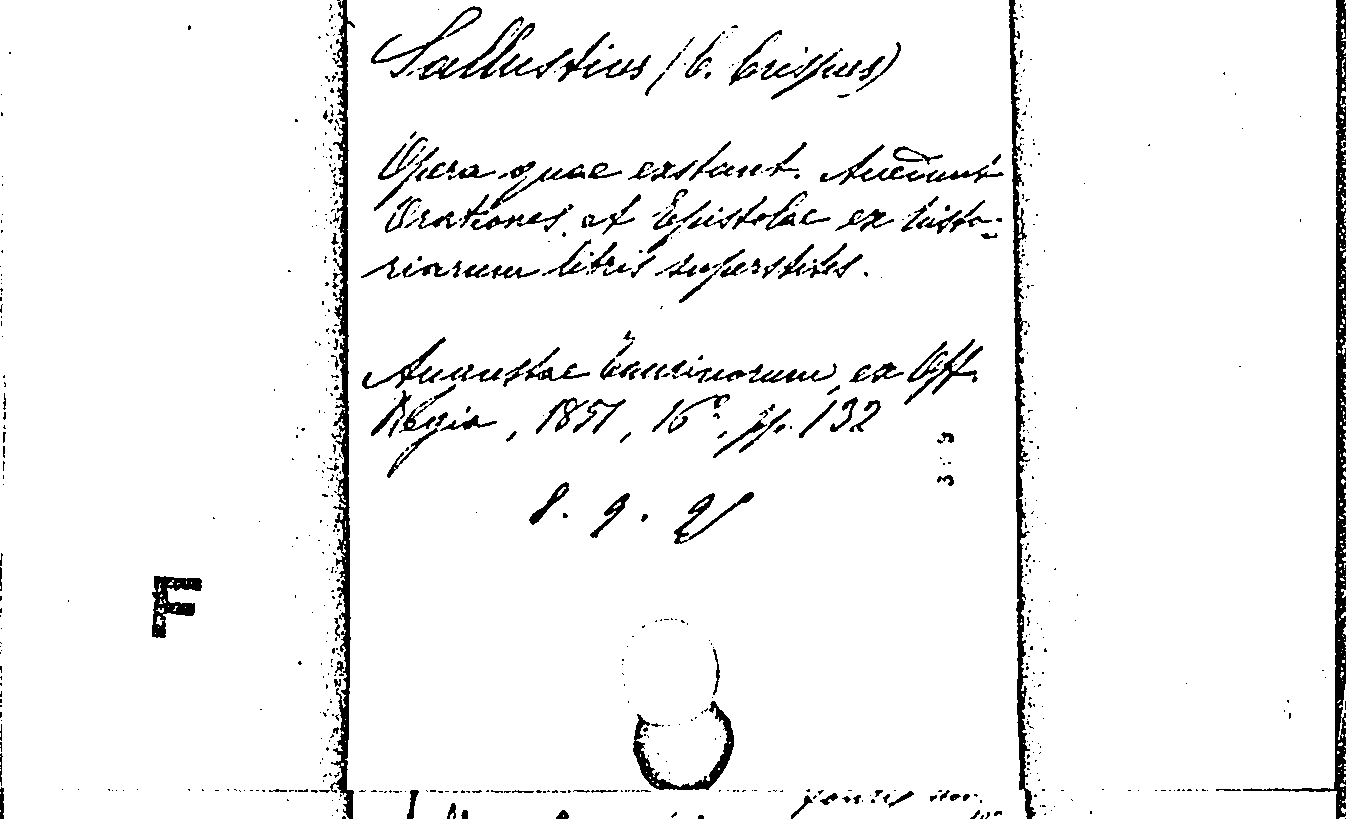 Sallustius (C. Crispus)
Opera quae exstant. Accedunt
Orationes et Epistolae ex histo-
riarum libris superstites.
Augustae Taurinorum, ex Off.
Regia, 1851, 16°, pp. 132
8. 9. 25
F